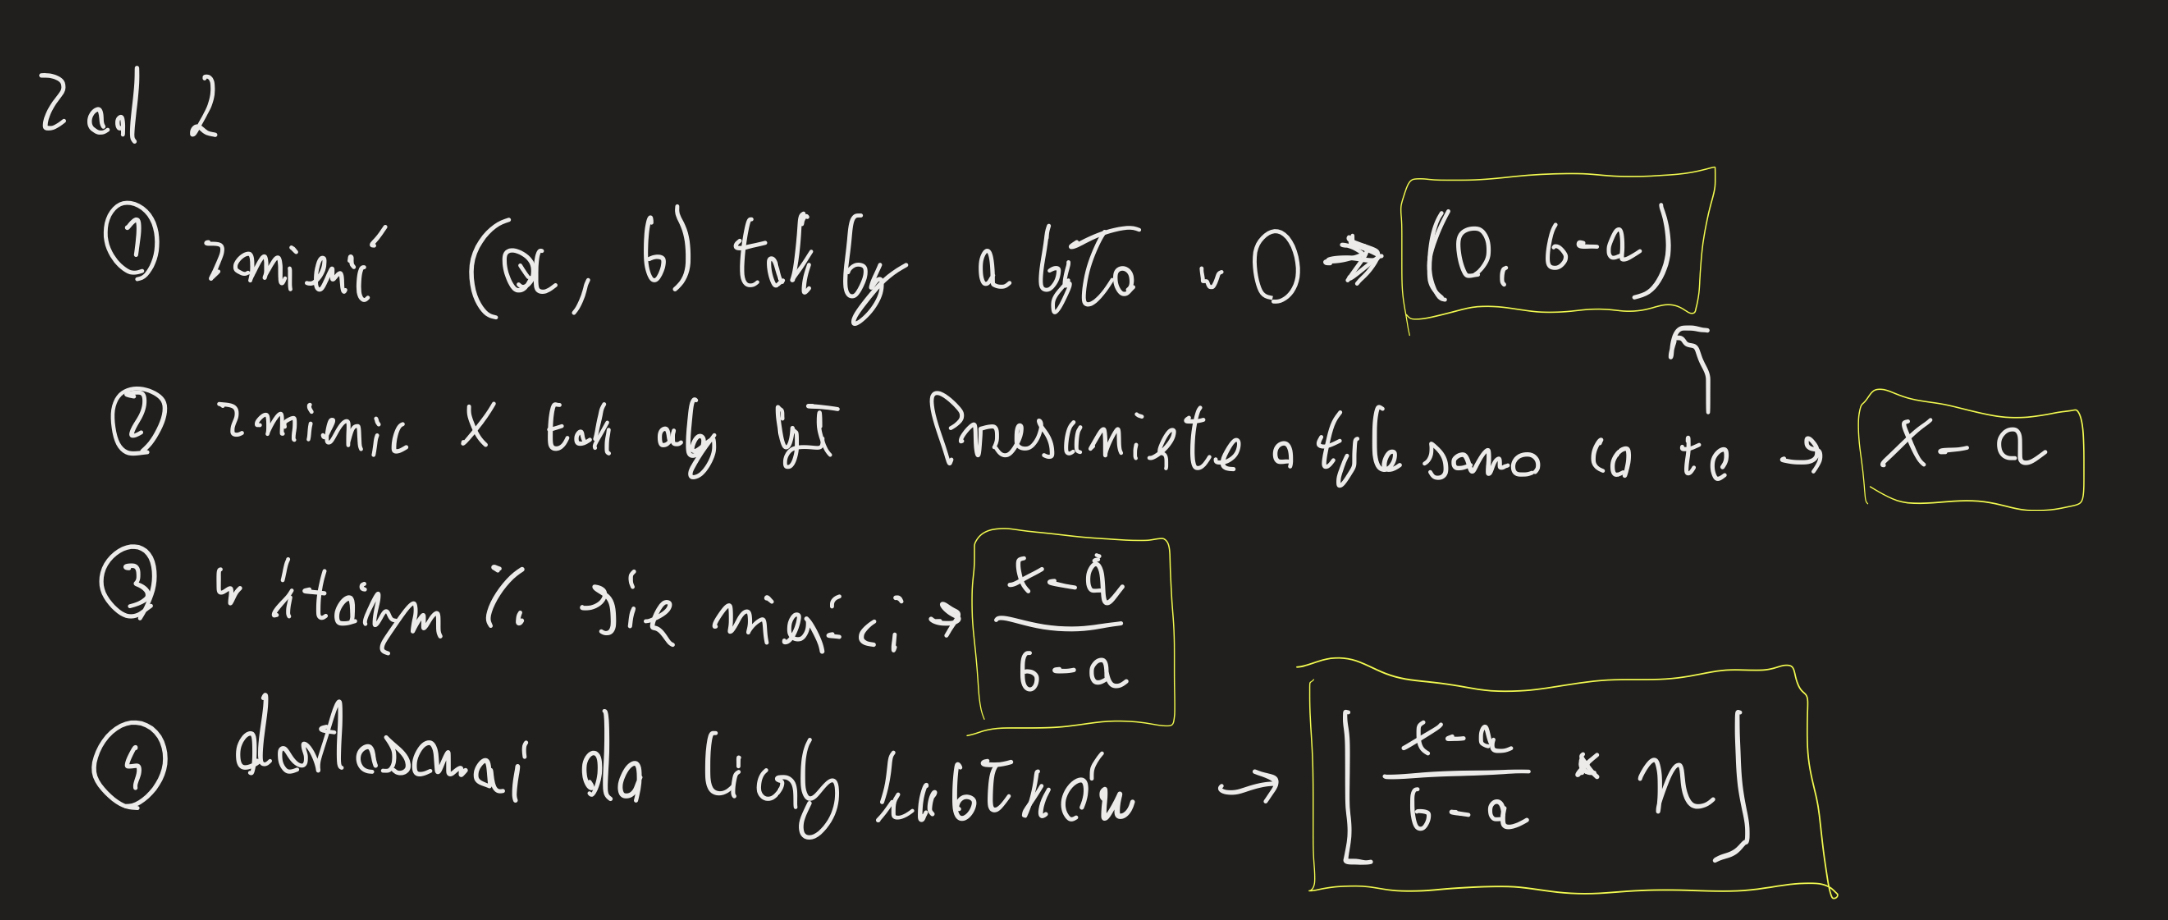 Zad 2
① zmienić (a, b) tak by a było w 0 → (0, b-a)
② zmienic x tak aby był Przesunięte o tyle samo co to → x - a
③ w którym % się mieści → \frac{x-a}{b-a}
④ dostosować do liczby kubłków → ⌊\frac{x-a}{b-a} * n⌋